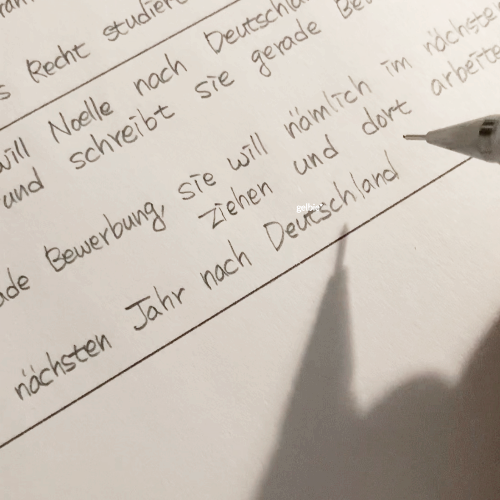 s Recht studier
will Noelle nach Deutschla
und schreibt sie gerade Be
ade Bewerbung, sie will nämlich im nächste
ziehen und dort arbeite
nächsten Jahr nach Deutschland